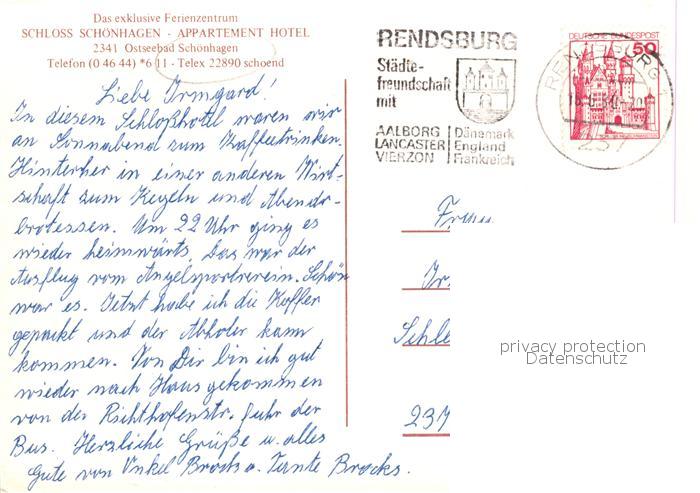 Das exklusive Ferienzentrum
SCHLOSS SCHÖNHAGEN - APPARTEMENT HOTEL
2341 Ostseebad Schönhagen
Telefon (0 46 44) *6 11 - Telex 22890 schoend
Liebe Irmgard!
In diesem Schloßhotel waren wir
am Sonnabend zum Kaffeetrinken.
Hinterher in einer anderen Wirt-
schaft zum Kegeln und Abend-
brotessen. Um 22 Uhr ging es
wieder heimwärts. Das war der
Ausflug vom Angelsportverein. Schön
war es. Jetzt habe ich die Koffer
gepackt und der Abholer kann
kommen. Von Dir bin ich gut
wieder nach Haus gekommen
von der Richthofenstr. fuhr der
Bus. Herzliche Grüße u. alles
Gute von Onkel Brocks u. Tante Brocks.
RENDSBURG
Städte-
freundschaft
mit
AALBORG Dänemark
LANCASTER England
VIERZON Frankreich
DEUTSCHE BUNDESPOST
50
RENDSBURG 1
237
Frau
Ir.
Schle
237
privacy protection
Datenschutz